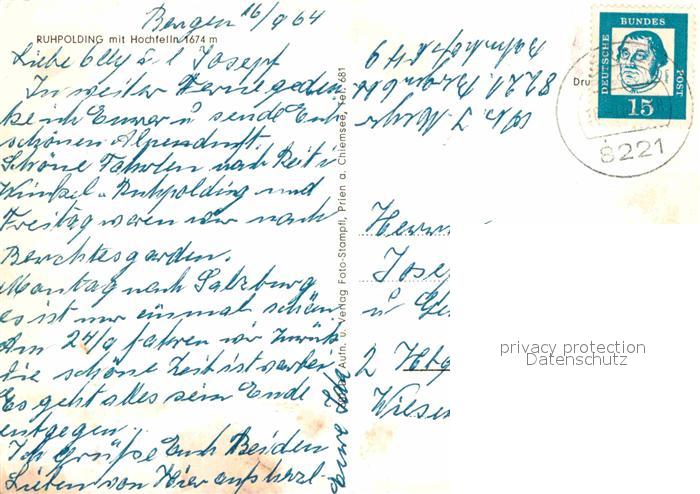 Bergen 16/9 64
RUHPOLDING mit Hochfelln 1674 m
Liebe Elly u. l. Josepf
In weiter Ferne geden
ke ich Eurer u sende Euch
schönen Alpenduft.
Schöne Fahrten nach Reit i
Winkel - Ruhpolding und
Freitag waren wir nach
Berchtesgarden.
Montag nach Salzburg
es ist nur einmal schön
Am 24/9 fahren wir zurück
die schöne Zeit ist vorbei
Es geht alles sein Ende
entgegen.
Ich Grüße Euch Beiden
Lieben von Hier aufs herzl-
Eure
Aufn. u. Verlag Foto-Stampfl, Prien a. Chiemsee, Tel. 681
8221 Bergen
Bahnhofstr 49
Dru
DEUTSCHE BUNDES POST
15
8221
Herrn
Josep
u
2
Wiesen
privacy protection
Datenschutz